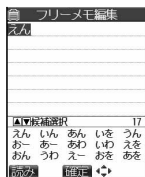 フリーメモ編集
えん
▲▼候補選択 17
えん いん あん いを うん
おー あー あわ いわ えを
おん うわ えー おを あを
読み 確定